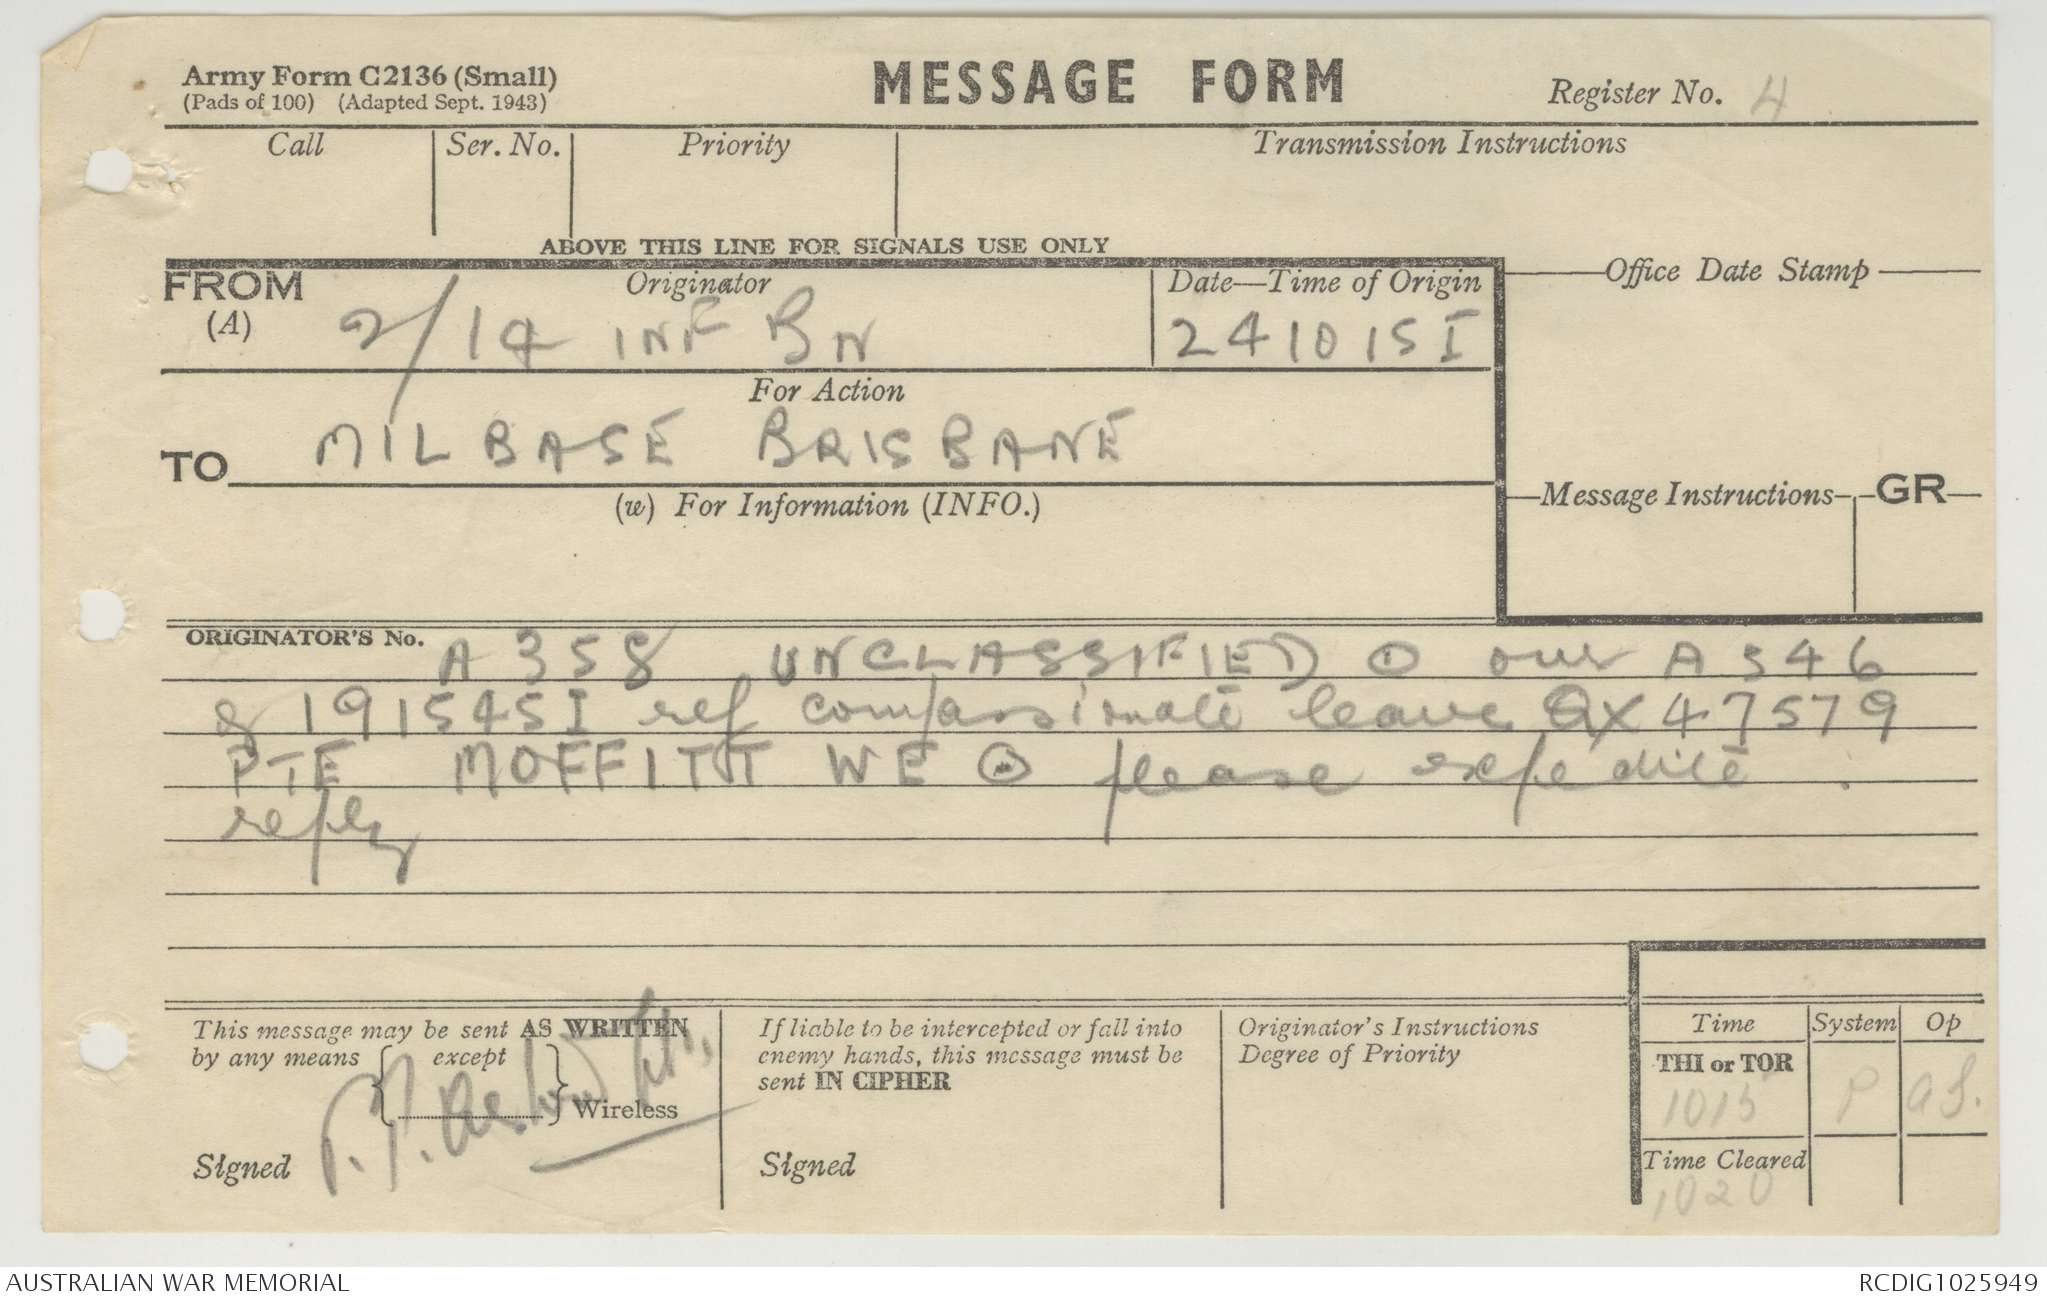 Army Form C2136 (Small)
(Pads of 100) (Adapted Sept. 1943)
MESSAGE FORM
Register No. 4
Call
Ser. No.
Priority
Transmission Instructions
ABOVE THIS LINE FOR SIGNALS USE ONLY
FROM
(A)
Originator
2/14 INF BN
Date—Time of Origin
241015I
Office Date Stamp
For Action
TO
MILBASE BRISBANE
(w) For Information (INFO.)
Message Instructions
GR
ORIGINATOR'S No.
A 358 UNCLASSIFIED ⊙ our A 346
of 191545I ref compassionate leave QX47579
PTE MOFFITT WE ⊙ please expedite
reply
This message may be sent AS WRITTEN
by any means { except }
Wireless
Signed
If liable to be intercepted or fall into
enemy hands, this message must be
sent IN CIPHER
Signed
Originator's Instructions
Degree of Priority
Time
System
Op
THI or TOR
1015
P
Time Cleared
1020
AUSTRALIAN WAR MEMORIAL
RCDIG1025949